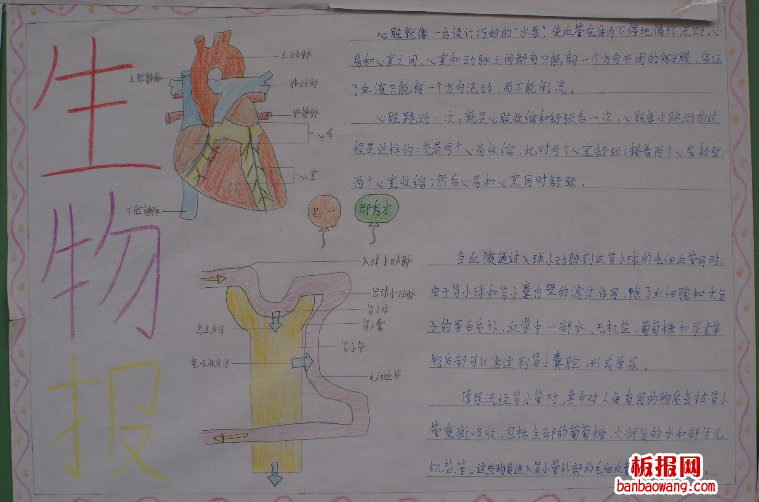 生
物
报
上腔静脉
下腔静脉
主动脉
肺动脉
肺静脉
心房
心室
心脏就像一台设计巧妙的“水泵”,使血管在体内不停地循环流动。心
房和心室之间,心室和动脉之间都有只能朝一个方向开闭的瓣膜,保证
了血液只能向一个方向流动,而不能倒流。
心脏跳动一次,就是心脏收缩和舒张各一次。心脏每次跳动的过
程是这样的:先是两个心房收缩,此时两个心室舒张;接着两个心房舒张,
两个心室收缩;然后心房和心室同时舒张。
入球小动脉
出球小动脉
肾小球
肾小囊
肾小管
毛细血管
当血液通过入球小动脉到达肾小球的毛细血管网时,
由于肾小球和肾小囊内壁的滤过作用,除了血细胞和大分
子的蛋白质外,血浆中一部水、无机盐、葡萄糖和尿素等
都可以滤过到肾小囊腔,形成原尿。
原尿流经肾小管时,其中对人体有用的物质被肾小
管重新吸收,包括全部的葡萄糖、大部分的水和部分无
机盐等。这些物质进入肾小管外部的毛细
板报网
banbaowang.com